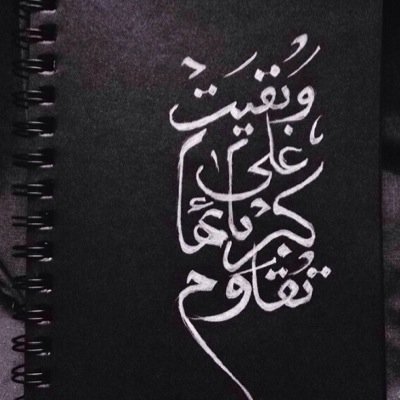 وَبَقيَت
على
كبريائها
تقاوم